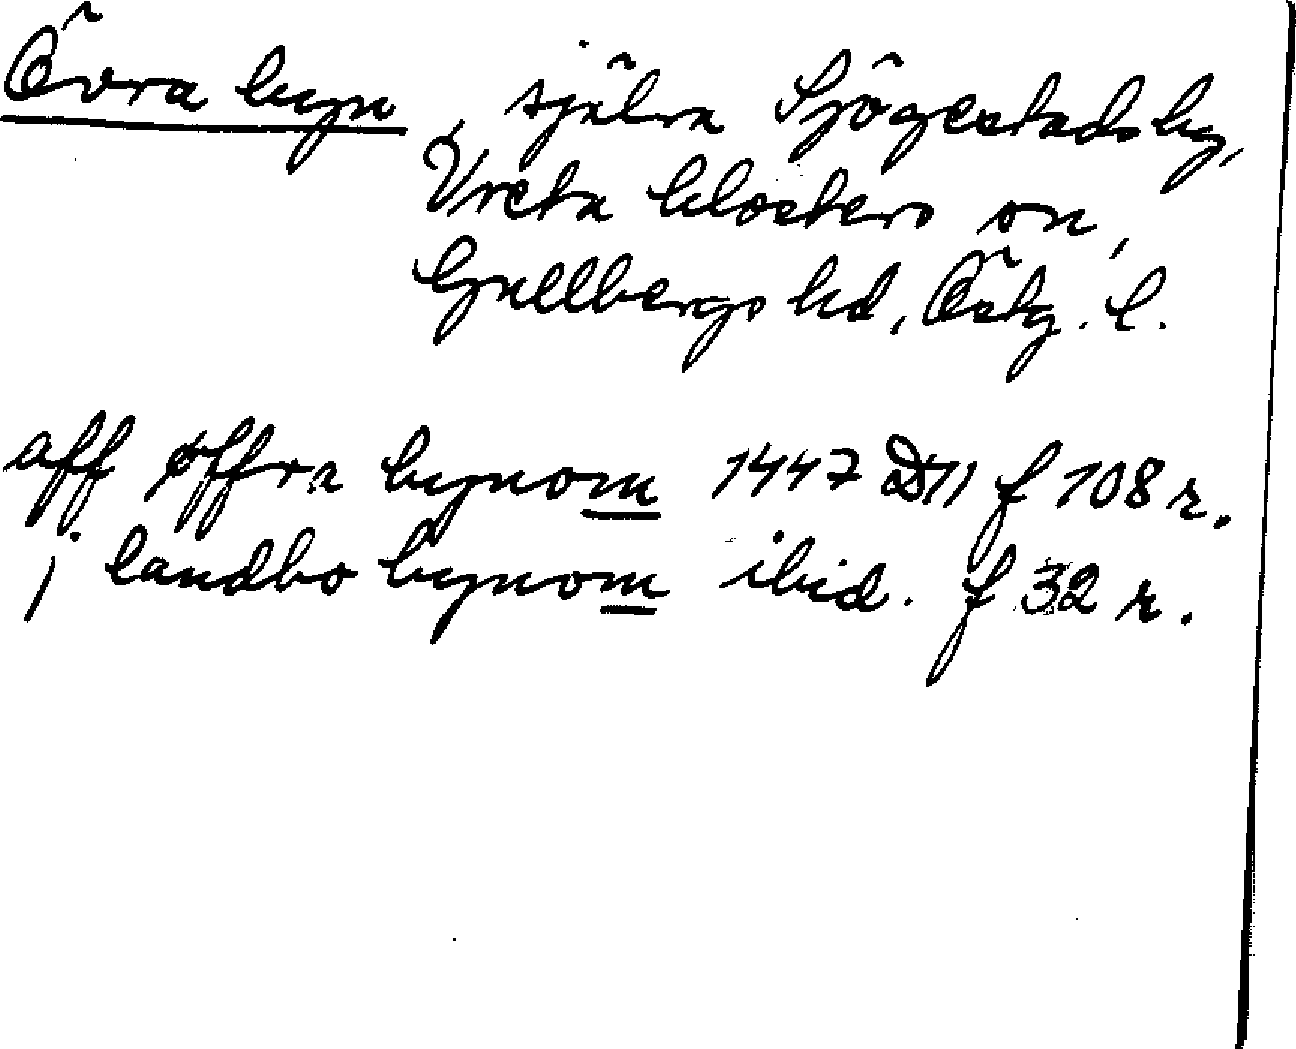 Övra byn, själva Sjögestads by,
Vreta klosters sn,
Gullbergs hd, Östg. l.
aff øffra bynom 1447 D11 f 108 r.
j landbo bynom ibid. f 32 r.